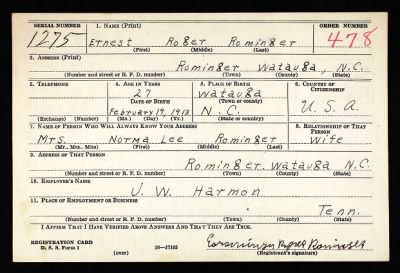 SERIAL NUMBER 1. NAME (Print) ORDER NUMBER
1275 Ernest Roger Rominger 478
(First) (Middle) (Last)
2. ADDRESS (Print)
Rominger Watauga, N.C.
(Number and street or R. F. D. number) (Town) (County) (State)
3. TELEPHONE 4. AGE IN YEARS 5. PLACE OF BIRTH 6. COUNTRY OF CITIZENSHIP
27 Watauga
DATE OF BIRTH (Town or county)
February 19, 1913 N.C. U.S.A.
(Exchange) (Number) (Mo.) (Day) (Yr.) (State or country)
7. NAME OF PERSON WHO WILL ALWAYS KNOW YOUR ADDRESS 8. RELATIONSHIP OF THAT PERSON
Mrs. Norma Lee Rominger Wife
(Mr., Mrs., Miss) (First) (Middle) (Last)
9. ADDRESS OF THAT PERSON
Rominger. Watauga N.C.
(Number and street or R. F. D. number) (Town) (County) (State)
10. EMPLOYER'S NAME
J. W. Harmon
11. PLACE OF EMPLOYMENT OR BUSINESS
Tenn.
(Number and street or R. F. D. number) (Town) (County) (State)
I AFFIRM THAT I HAVE VERIFIED ABOVE ANSWERS AND THAT THEY ARE TRUE.
REGISTRATION CARD
D. S. S. Form 1 16—17105
(over) (Registrant's signature)